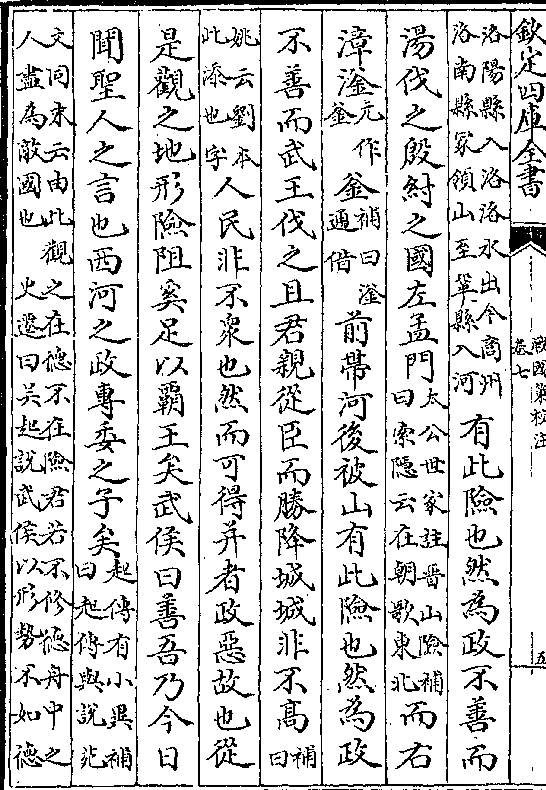 欽定四庫全書
戰國策校注
卷七
五
洛陽縣入洛洛水出今商州
洛南縣冢領山至鞏縣入河
有此險也然為政不善而
湯伐之殷紂之國左孟門
太公世家註晉山險補
曰索隱云在朝歌東北
而右
漳滏
元作
釜
釜
補曰滏
通借
前帶河後被山有此險也然為政
不善而武王伐之且君親從臣而勝降城城非不髙
補
曰
姚云劉本
此添也字
人民非不衆也然而可得并者政惡故也從
是觀之地形險阻奚足以霸王矣武侯曰善吾乃今日
聞聖人之言也西河之政專委之子矣
起傳有小異補
曰起傳與說苑
文同末云由此觀之在德不在險君若不修德舟中之
人盡為敵國也 史遷曰吳起說武侯以形勢不如德